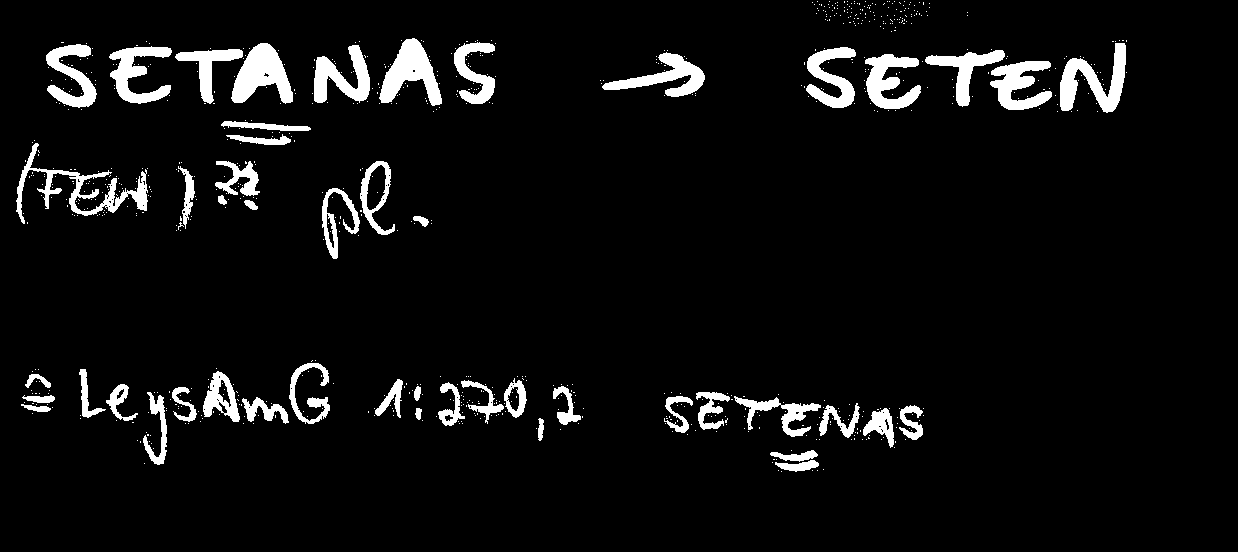 SETANAS → SETEN
(FEW) ?? pl.
≙ LeysAmG 1:270,2 SETENAS